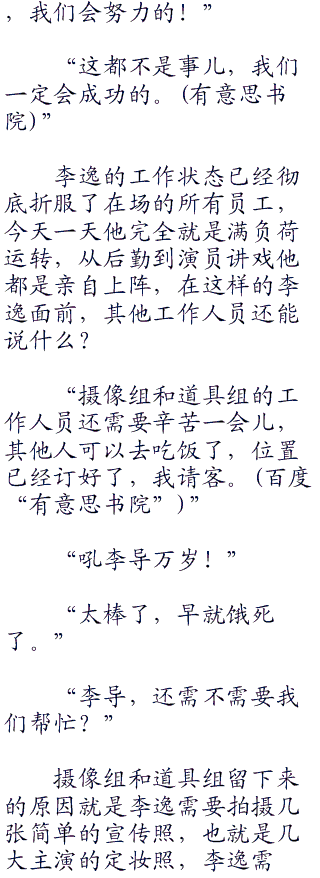 ，我们会努力的！”
“这都不是事儿，我们
一定会成功的。(有意思书
院)”
李逸的工作状态已经彻
底折服了在场的所有员工，
今天一天他完全就是满负荷
运转，从后勤到演员讲戏他
都是亲自上阵，在这样的李
逸面前，其他工作人员还能
说什么？
“摄像组和道具组的工
作人员还需要辛苦一会儿，
其他人可以去吃饭了，位置
已经订好了，我请客。(百度
“有意思书院”)”
“吼李导万岁！”
“太棒了，早就饿死
了。”
“李导，还需不需要我
们帮忙？”
摄像组和道具组留下来
的原因就是李逸需要拍摄几
张简单的宣传照，也就是几
大主演的定妆照，李逸需